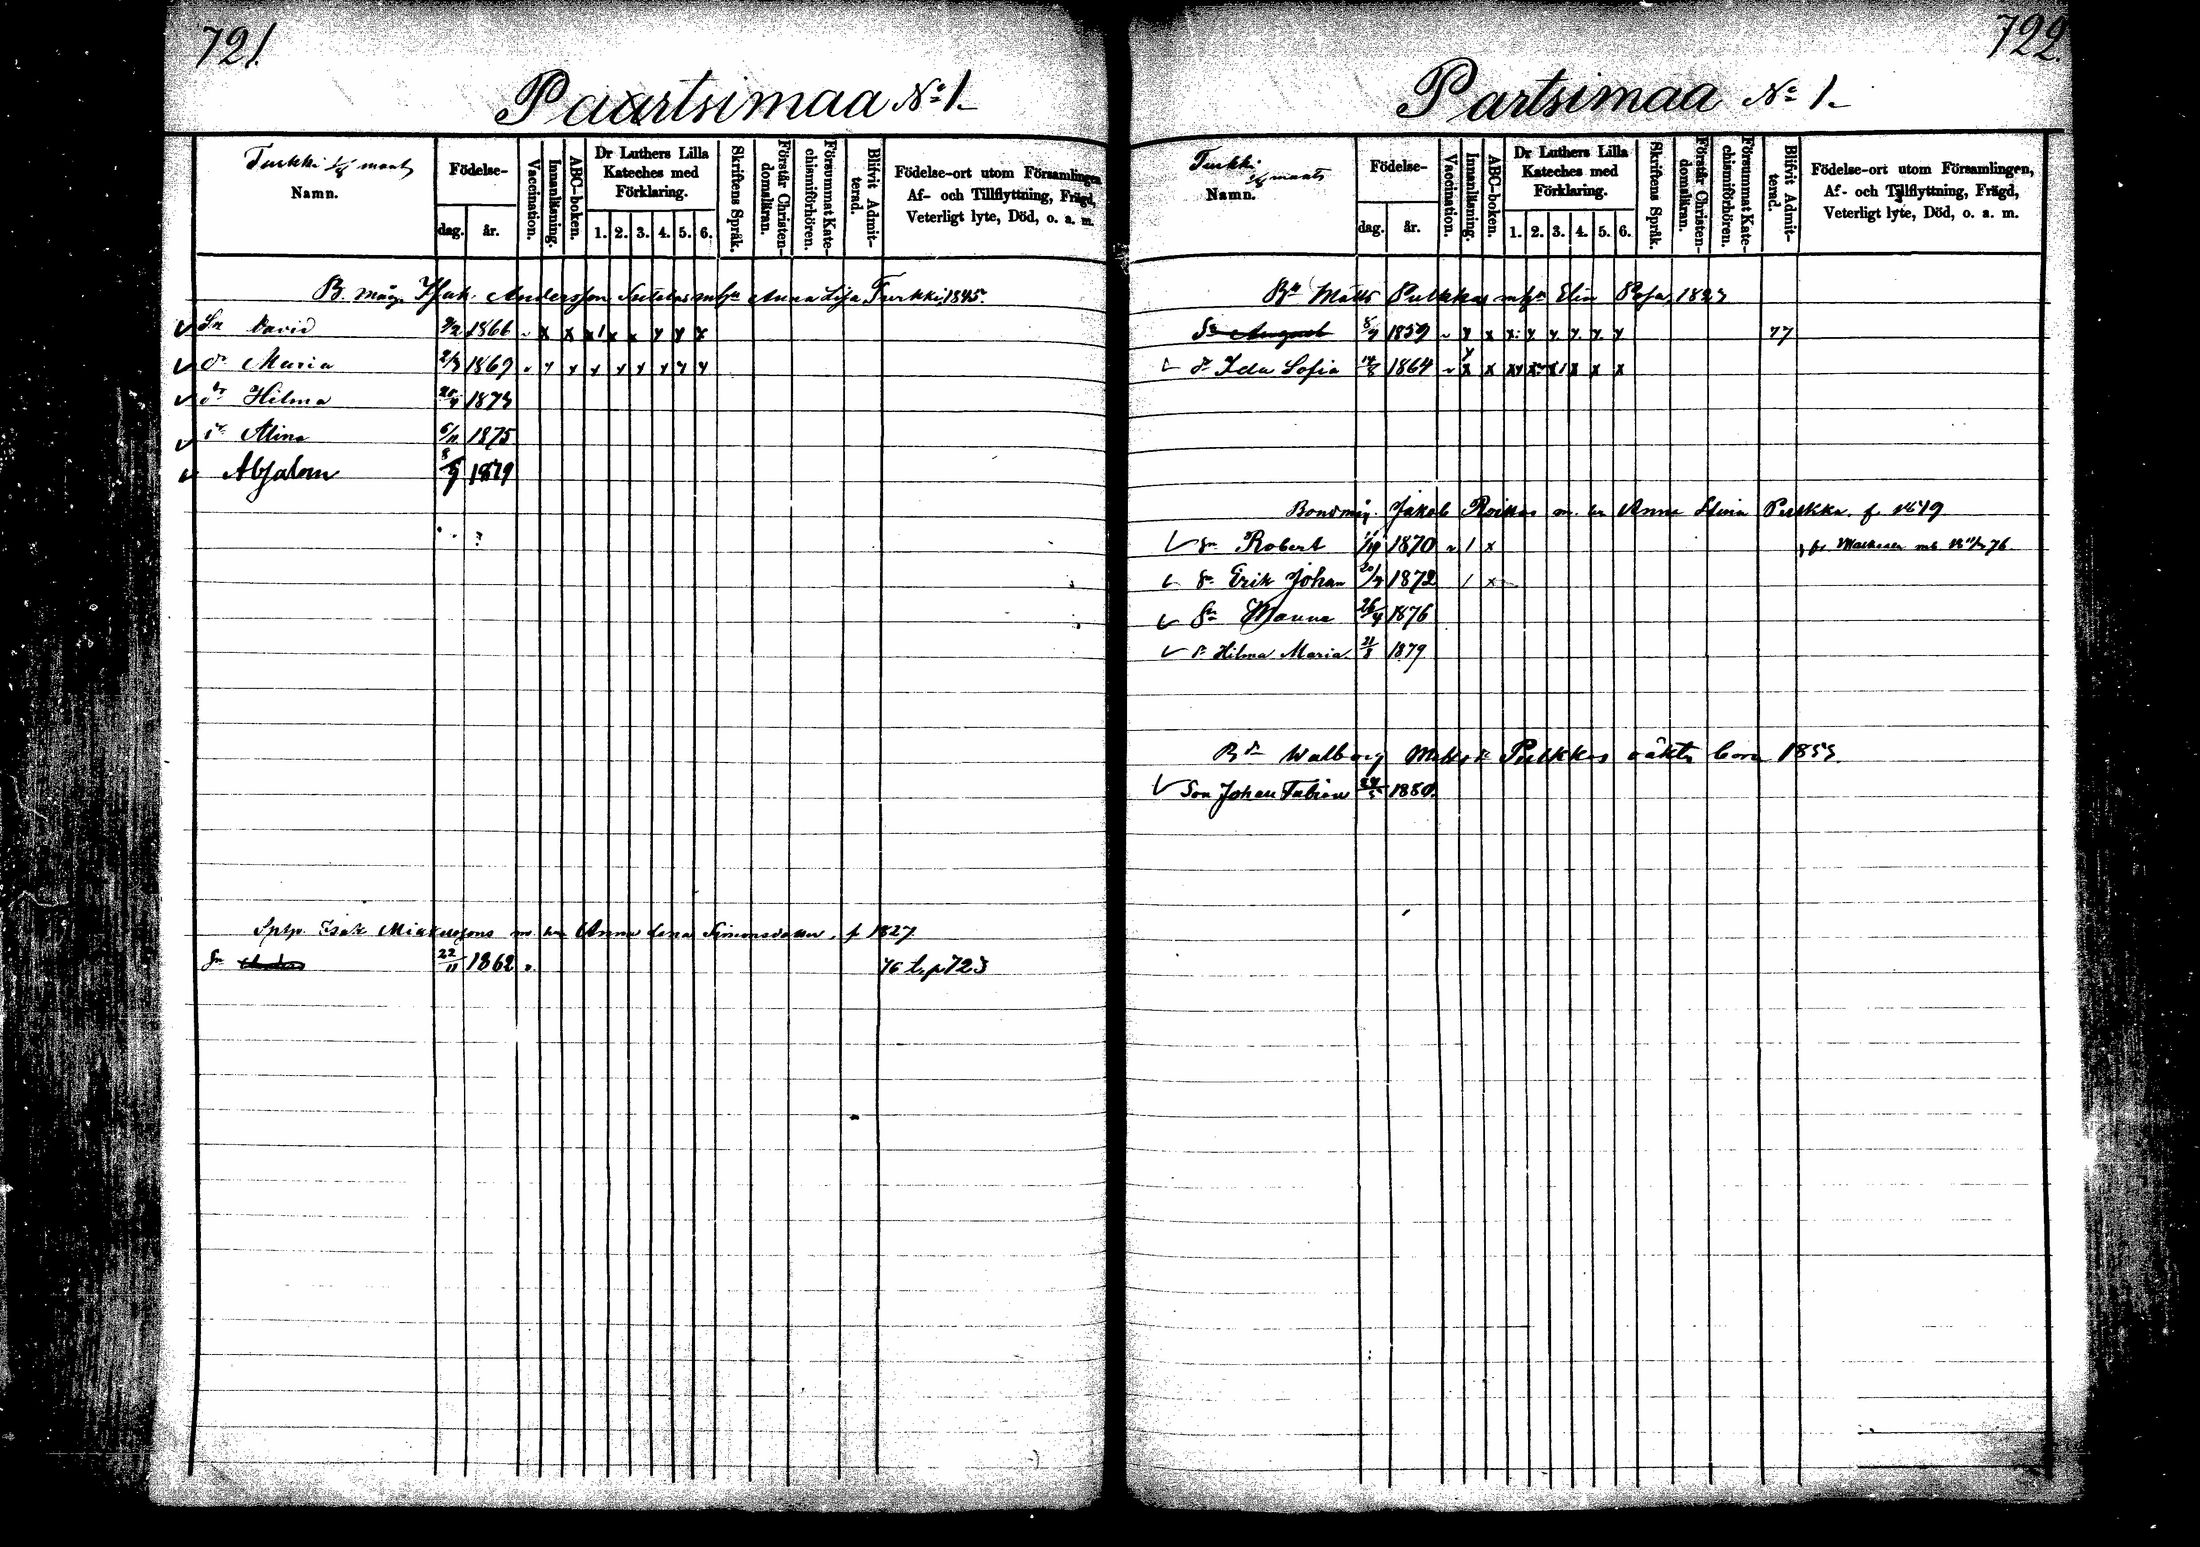 721.
Paartsimaa No 1.
Turkki maat
Namn.
Födelse-
dag. år.
Vaccination.
Innanläsning.
ABC-boken.
Dr Luthers Lilla Kateches med Förklaring.
1. 2. 3. 4. 5. 6.
Skriftens Språk.
Förstår Christen-domsläran.
Försummat Kate-chismiförhören.
Blifvit Admit-terad.
Födelse-ort utom Församlingen,
Af- och Tillflyttning, Frägd,
Veterligt lyte, Död, o. a. m.
B. måg. Isak Andersson m. hu Anna Lisa Turkki, 1845.
Sn David 9/2 1866 x x x 1 x x y y x
dr Maria 2/3 1869 y y y y y y y y
dr Hilma 1873
dr Alina 6/11 1875
Absalom 1879
Sptp. Isak Mickelssons m. hu Anna Lena Simonsdotter, f 1827
Sn Anders 22/11 1862 76 t. p 723
722.
Partsimaa No 1.
Turkki maats
Namn.
Födelse-
dag. år.
Vaccination.
Innanläsning.
ABC-boken.
Dr Luthers Lilla Kateches med Förklaring.
1. 2. 3. 4. 5. 6.
Skriftens Språk.
Förstår Christen-domsläran.
Försummat Kate-chismiförhören.
Blifvit Admit-terad.
Födelse-ort utom Församlingen,
Af- och Tillflyttning, Frägd,
Veterligt lyte, Död, o. a. m.
Matts Pulkkas m hu Elin 1823
Sn August 1859 y x x y y y y y 77
dr Ida Sofia 14/8 1864 x x x x x x x
Bondmåg. Jakob Roikas m. hu Anna Stina Pulkka. f. 1849
Sn Robert 1870 1 x
Sn Erik Johan 1872 1 x
Sn Manne 26/4 1876
dr Hilma Maria 21/8 1879
Bdr Walborg Mattsdr Pulkkas oäkta barn 1853.
Son Johan Fabian 1880.